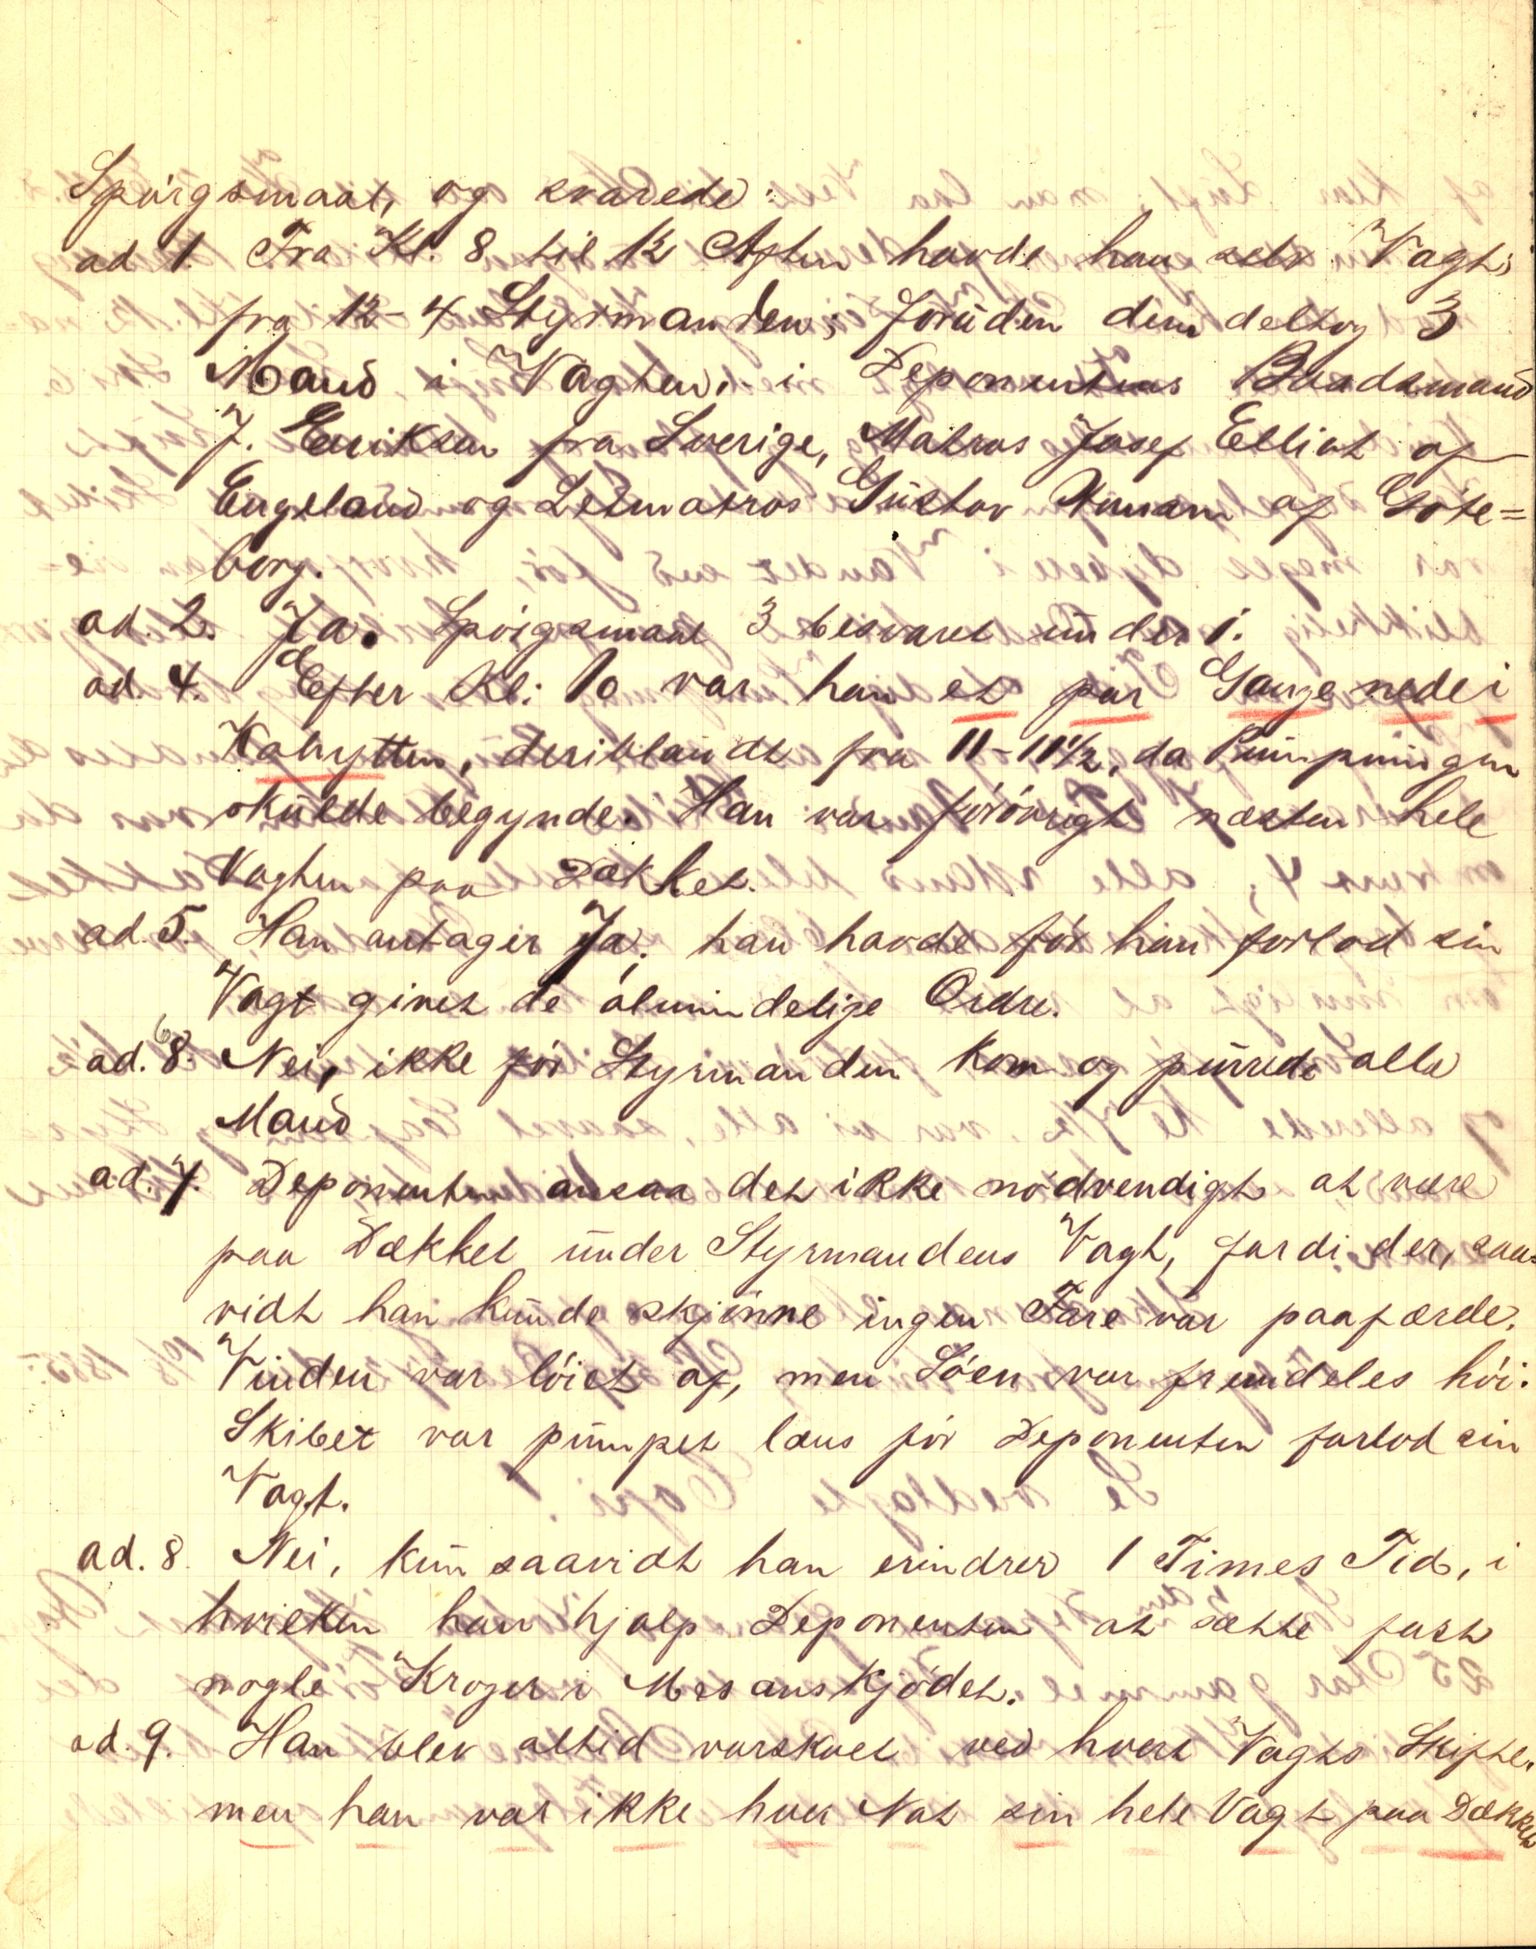 Spörgsmaal, og svarede:
ad 1. Fra Kl. 8 til 12 Aften havde han selv Vagt;
fra 12-4 Styrmanden; foruden dem deltog 3
Mand i Vagten, i Deponentens Baadsmand
J. Eriksen fra Sverige, Matros Josef Elliot af
Engeland og Letmatros Gustav af Göte=
borg.
ad. 2. Ja. Spörgsmaal 3 besvaret under 1.
ad. 4. Efter Kl: 10 var han et par Gange nede i
Kahytten, deriblandt fra 11-11½, da Pumpningen
skulde begynde. Han var forövrigt næsten hele
Vagten paa Dækket.
ad. 5. Han antager Ja; han havde för han forlod sin
Vagt givet de almindelige Ordre.
ad. 6. Nei, ikke för Styrmanden kom og purrede alle
Mand
ad. 7. Deponenten ansaa det ikke nödvendigt at være
paa Dækket under Styrmandens Vagt, fordi der, saa=
vidt han kunde skjönne ingen Fare var paafærde.
Vinden var löiet af, men Söen var fremdeles höi.
Skibet var pumpet læns för Deponenten forlod sin
Vagt.
ad. 8. Nei, kun saavidt han erindrer 1 Times Tid, i
hvilken han hjalp Deponenten at sætte fast
nogle Kroger i Mesanskjödet.
ad. 9. Han blev altid varskoet ved hvert Vagts Skifte.
men han var ikke hver Nat sin hele Vagt paa Dækket